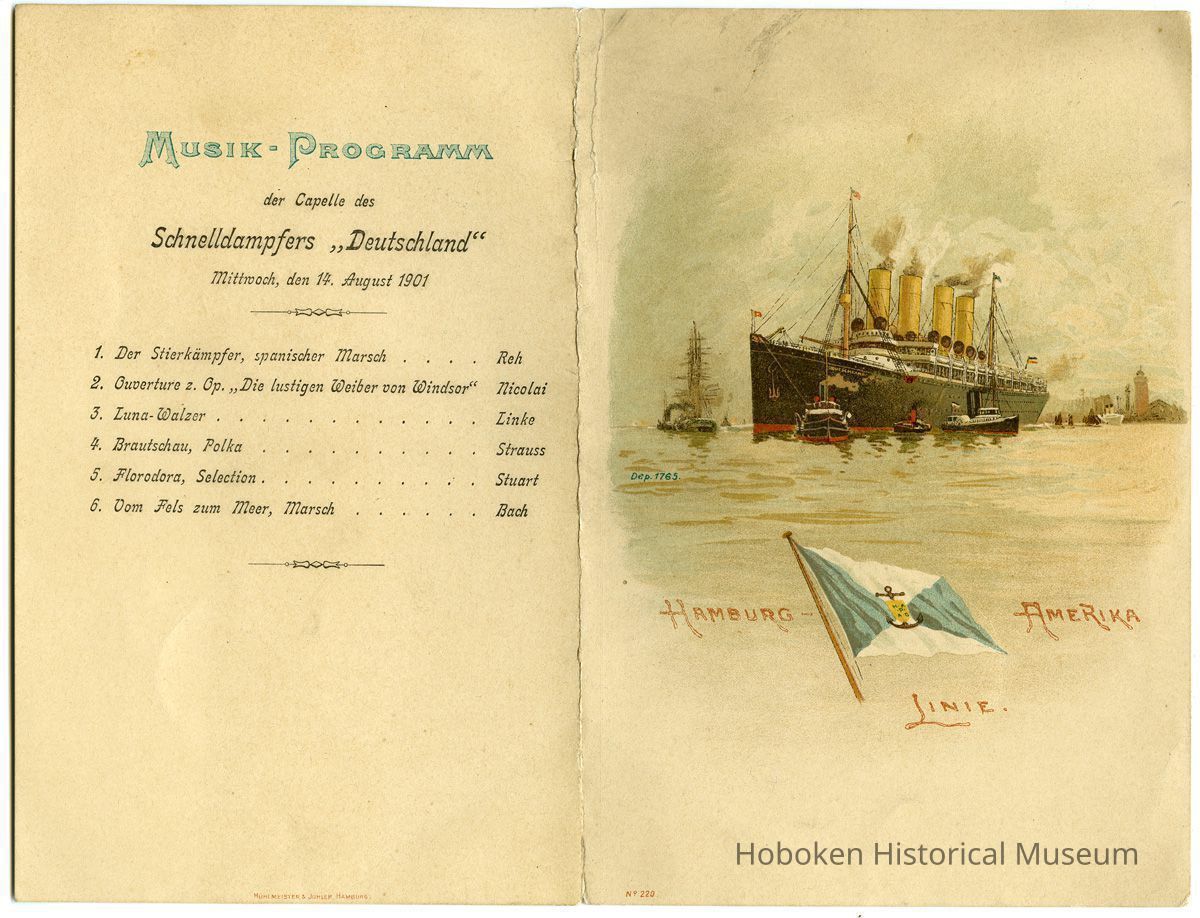 Musik-Programm
der Capelle des
Schnelldampfers „Deutschland“
Mittwoch, den 14. August 1901
1. Der Stierkämpfer, spanischer Marsch . . . . Reh
2. Ouverture z. Op. „Die lustigen Weiber von Windsor“ Nicolai
3. Luna-Walzer . . . . . . . . . . . . Linke
4. Brautschau, Polka . . . . . . . . . . Strauss
5. Florodora, Selection . . . . . . . . . . Stuart
6. Vom Fels zum Meer, Marsch . . . . . . Bach
Mühlmeister & Johler, Hamburg.
Dep. 1765.
Hamburg - Amerika
Linie.
Hoboken Historical Museum
No. 220